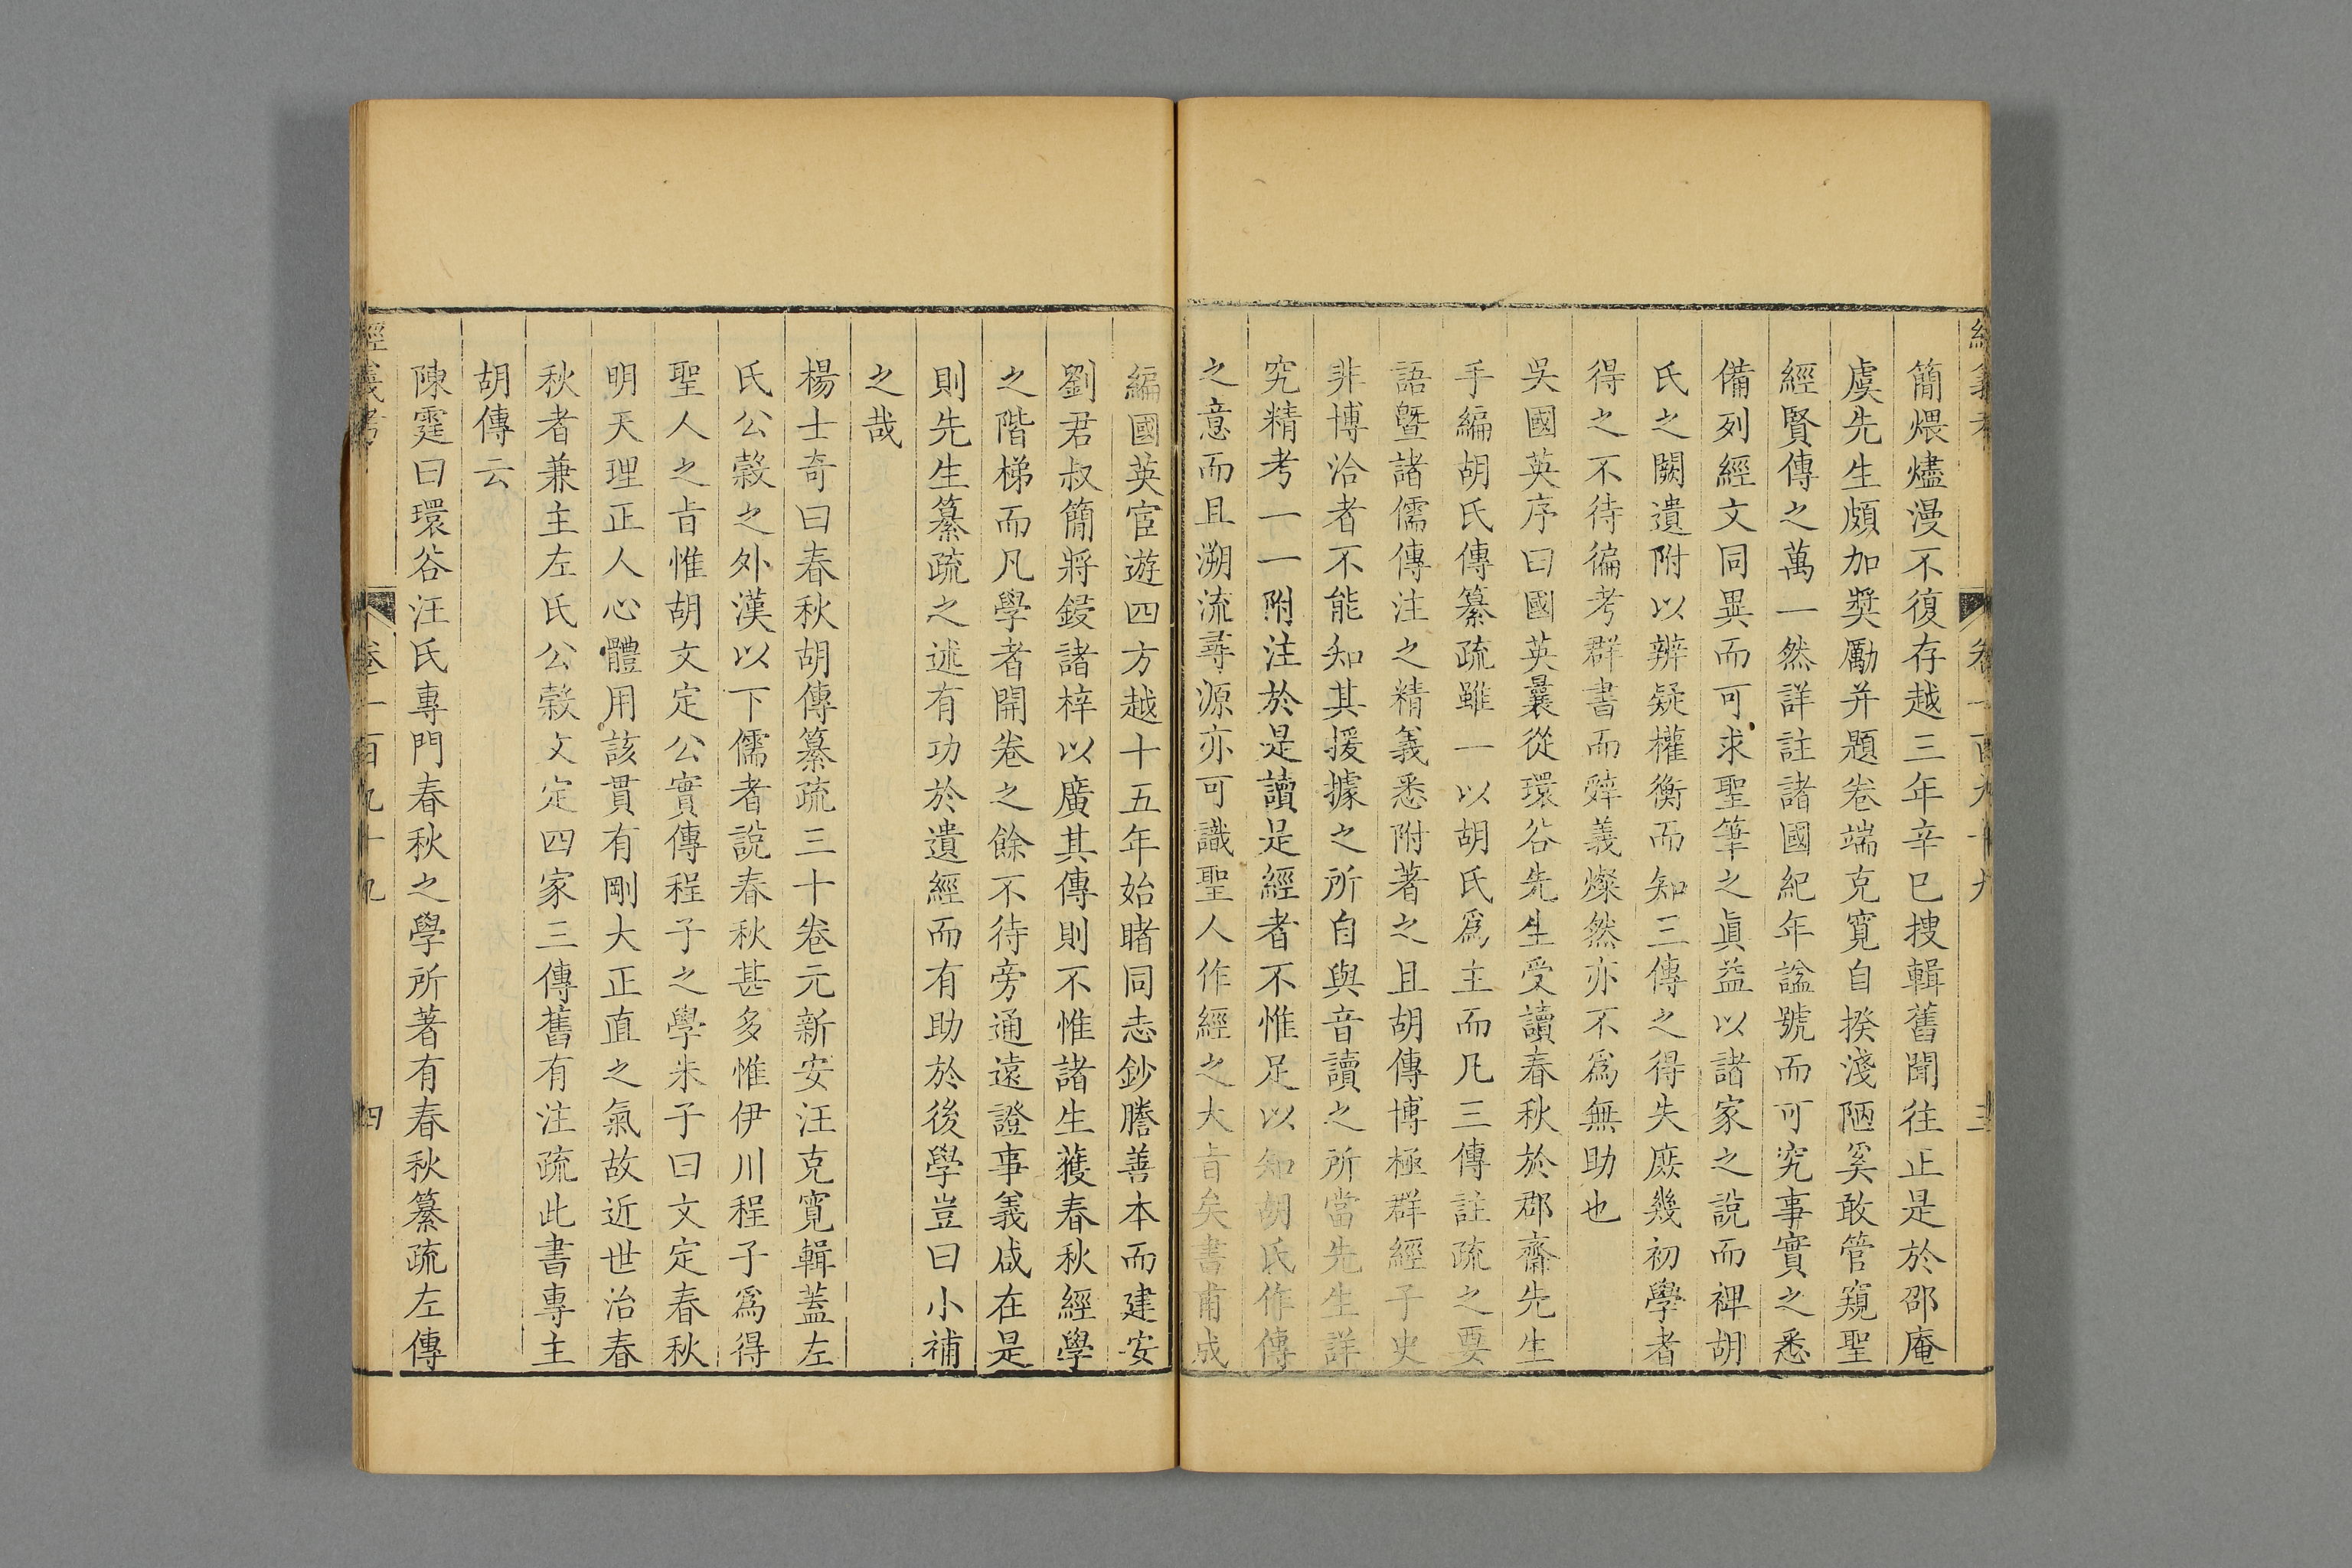 簡煨燼漫不復存越三年辛巳搜輯舊聞往正是於邵庵
虞先生頗加奬勵并題卷端克寬自揆淺陋奚敢管窺聖
經賢傳之萬一然詳註諸國紀年諡號而可究事實之悉
備列經文同異而可求聖筆之眞益以諸家之說而裨胡
氏之闕遺附以辨疑權衡而知三傳之得失庶幾初學者
得之不待徧考群書而辤義燦然亦不爲無助也
吳國英序曰國英曩從環谷先生受讀春秋於郡齋先生
手編胡氏傳纂疏雖一以胡氏爲主而凡三傳註疏之要
語曁諸儒傳注之精義悉附著之且胡傳博極群經子史
非博洽者不能知其援據之所自與音讀之所當先生詳
究精考一一附注於是讀是經者不惟足以知胡氏作傳
之意而且溯流尋源亦可識聖人作經之大旨矣書甫成
編國英宦遊四方越十五年始睹同志鈔謄善本而建安
劉君叔簡將鋟諸梓以廣其傳則不惟諸生獲春秋經學
之階梯而凡學者開卷之餘不待旁通遠證事義咸在是
則先生纂疏之述有功於遺經而有助於後學豈曰小補
之哉
楊士奇曰春秋胡傳纂疏三十卷元新安汪克寬輯蓋左
氏公榖之外漢以下儒者說春秋甚多惟伊川程子爲得
聖人之旨惟胡文定公實傳程子之學朱子曰文定春秋
明天理正人心體用該貫有剛大正直之氣故近世治春
秋者兼主左氏公榖文定四家三傳舊有注疏此書專主
胡傳云
陳霆曰環谷汪氏專門春秋之學所著有春秋纂疏左傳
經義考
卷一百九十九
四